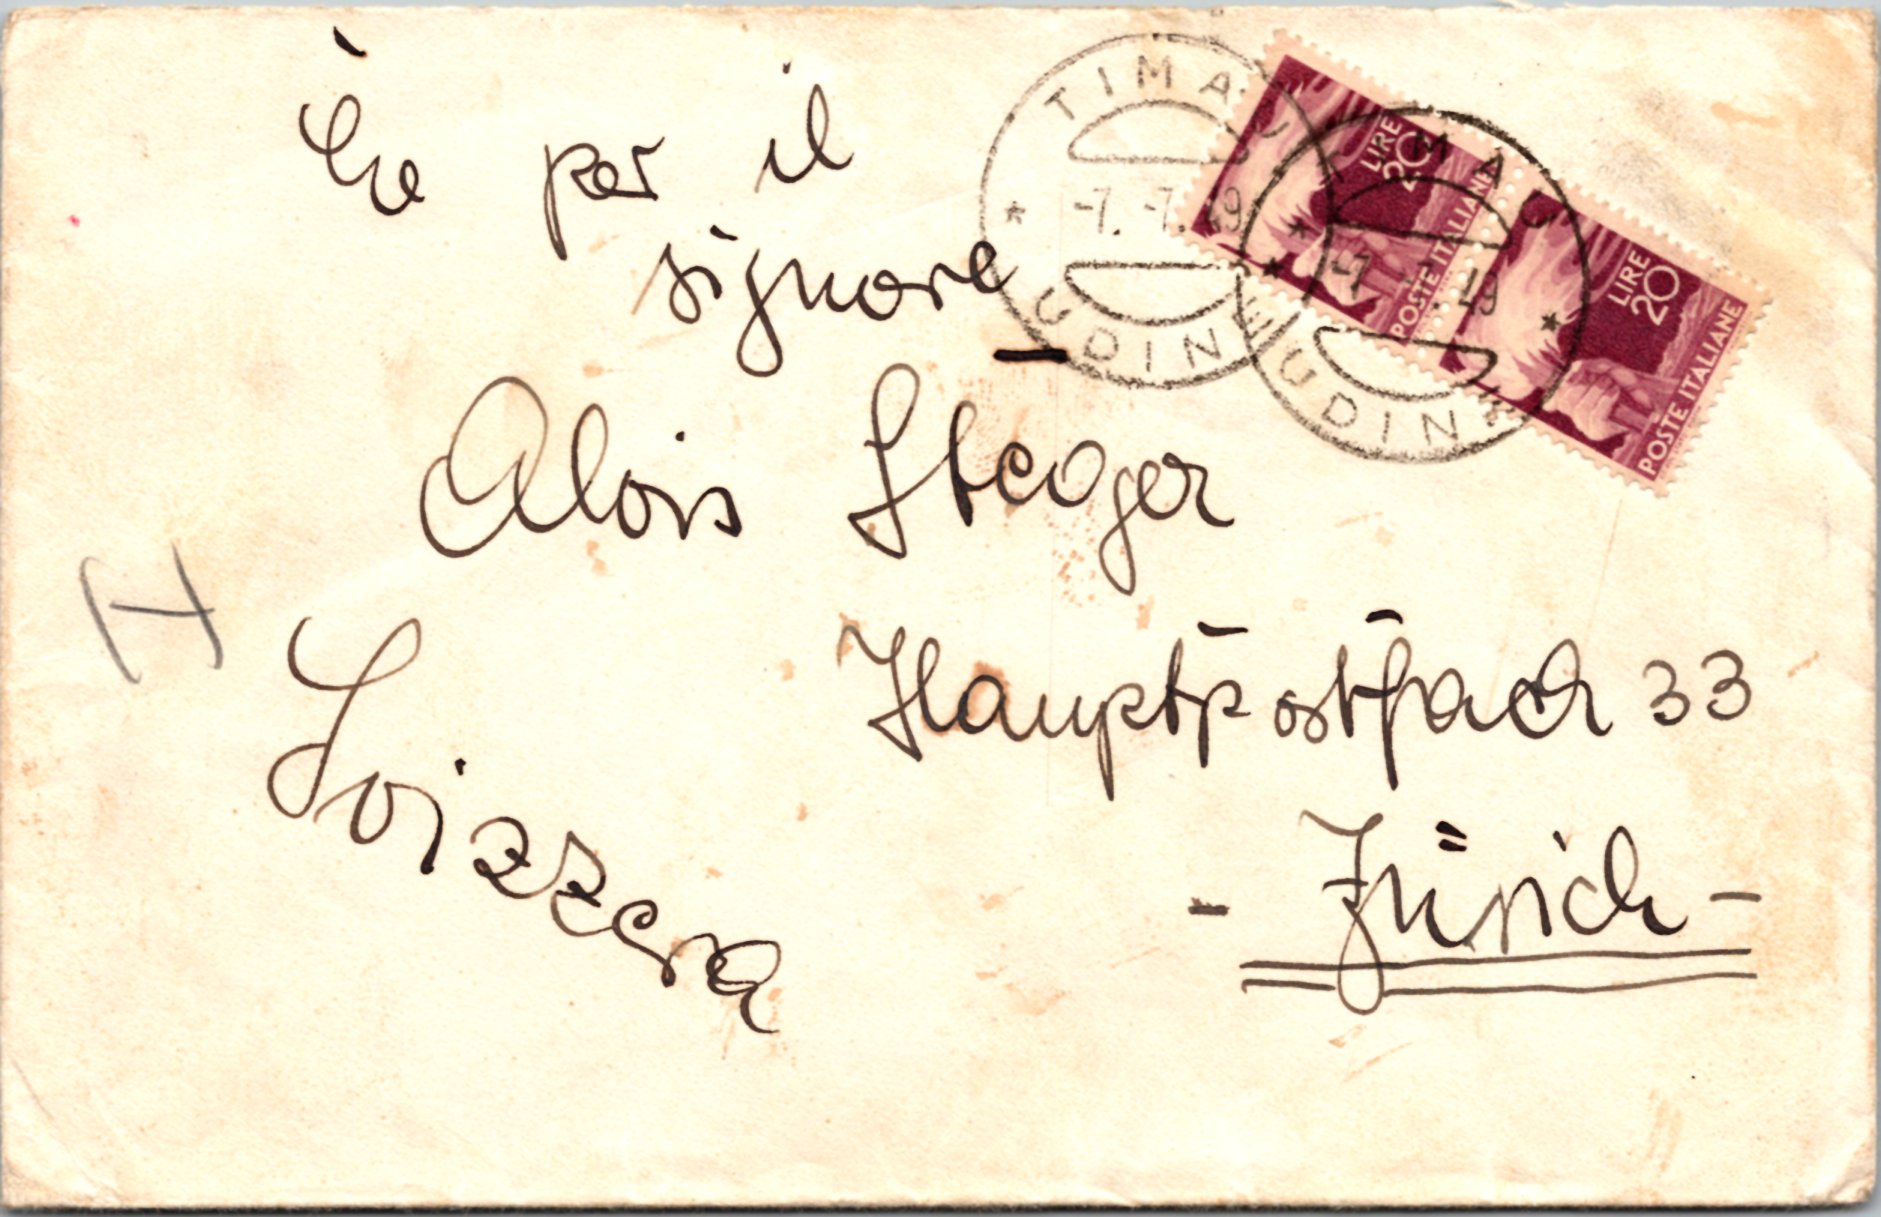 per il
signore
Alois Steger
Hauptpostfach 33
- Zürich -
Svizzera
H
TIMAU
-7. -7. 49
UDINE
TIMAU
UDINE
LIRE
20
POSTE ITALIANE
LIRE
20
POSTE ITALIANE